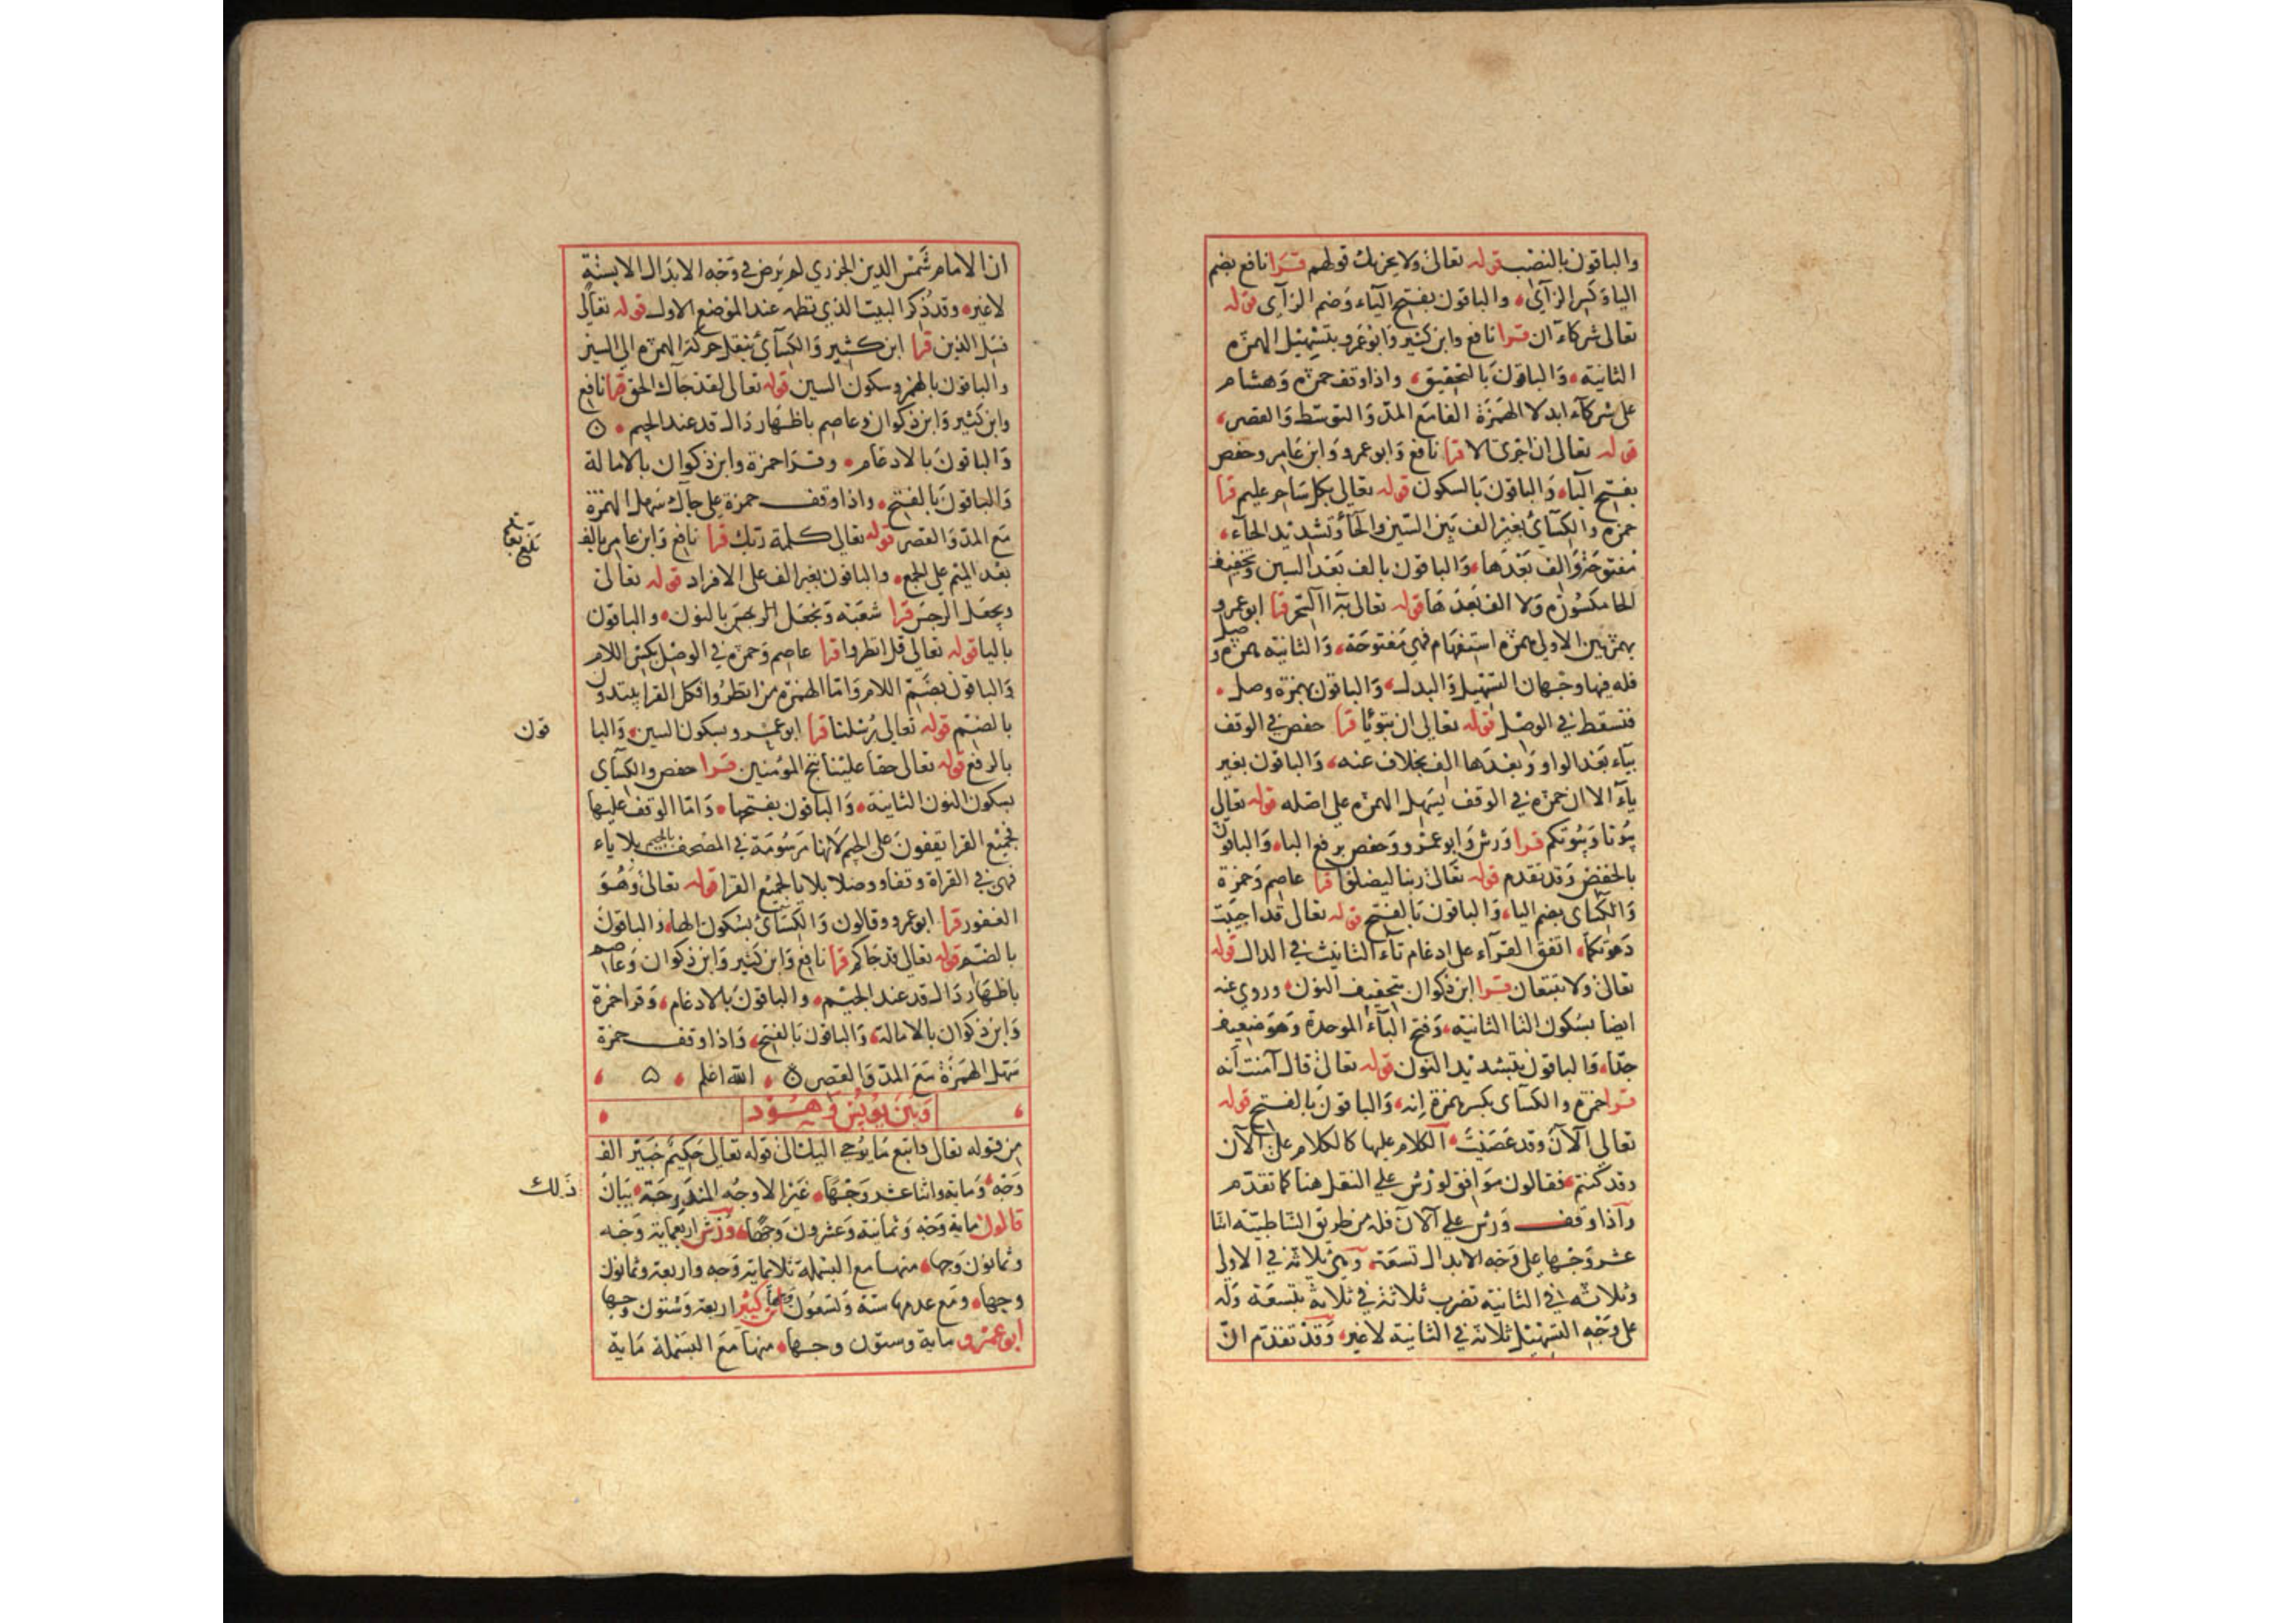 والباقون بالنصب قوله تعالى ولا يحزنك قولهم قرا نافع بضم
الياء وكسر الزآي، والباقون بفتح الياء وضم الزآي قوله
تعالى شركاء ان قرا نافع وابن كثير وابو عمرو بتسهيل الهمزة
الثانية، والباقون بالتحقيق، واذا وقف حمزة وهشام
على شركآء ابدلا الهمزة الفا مع المد والتوسط والقصر،
قوله تعالى ان اجرى الا قرا نافع وابو عمرو وابن عامر وحفص
بفتح الياء والباقون بالسكون قوله تعالى بكل ساحر عليم قرا
حمزة والكسآئ بغير الف بين السين والحآء وتشديد الحآء،
مفتوحة والف بعدها، والباقون بالف بعد السين وتخفيف
الحا مكسورة ولا الف بعدها قوله تعالى به آلسحر قرا ابو عمرو
بهمزتين الاولى همزة استفهام فهي مفتوحة، والثانية همزة وصل
فله فيها وجهان التسهيل والبدل، والباقون بهمزة وصل،
فتسقط في الوصل قوله تعالى ان تبوئا قرا حفص في الوقف
بيآء بعد الواو وبعدها الف بخلاف عنه، والباقون بغير
يآء الا ان حمزة في الوقف يسهل الهمزة على اصله قوله تعالى
بيوتا وبيوتكم قرا ورش وابو عمرو وحفص برفع الباء والباقون
بالخفض وقد تقدم قوله تعالى ربنا ليضلوا قرا عاصم وحمزة
والكسآى بضم اليا، والباقون بالفتح قوله تعالى قد اجيبت
دعوتكما، اتفق القرآء على ادغام تآء التانيث في الدال قوله
تعالى ولا تتبعان قرا ابن ذكوان بتخفيف النون، وروي عنه
ايضا بسكون التا الثانية، وفتح البآء الموحدة وهو ضعيف
جدا، والباقون بتشديد النون قوله تعالى قال آمنت انه
قرا حمزة والكسآى بكسر همزة إنه، والباقون بالفتح قوله
تعالى آلآن وقد عصيت، الكلام عليها كالكلام على آلآن
وقد كنتم، فقالون موافق لورش على النقل هنا كما تقدم
وآذا وقف ورش على آلآن فله من طريق الشاطبية اثنا
عشر وجها على وجه الابدال تسعة، وهي ثلاثة في الاولى
وثلاثة في الثانية تضرب ثلاثة في ثلاثة بتسعة وله
على وجه التسهيل ثلاثة في الثانية لا غير، وقد تقدم ان
ان الامام شمس الدين الجزري لم يرض في وجه الابدال الا بستة
لا غير، وقد ذكر البيت الذي نظمه عند الموضع الاول قوله تعالى
فسل الذين قرا ابن كثير والكسآئ بنقل حركة الهمزة الى السين
والباقون بالهمز وسكون السين قوله تعالى لقد جآك الحق قرا نافع
وابن كثير وابن ذكوان وعاصم باظهار دال قد عند الجيم،
والباقون بالادغام، وقرا حمزة وابن ذكوان بالامالة
والباقون بالفتح، واذا وقف حمزة على جآك سهل الهمزة
مع المد والقصر قوله تعالى كلمة ربك قرا نافع وابن عامر بالف
بعد الميم على الجمع، والباقون بغير الف على الافراد قوله تعالى
ويجعل الرجس قرا شعبة ونجعل الرجس بالنون، والباقون
باليا قوله تعالى قل انظروا قرا عاصم وحمزة في الوصل بكسر اللام
والباقون بضم اللام واما الهمزة من انظروا فكل القرا يبتدون
بالضم قوله تعالى رسلنا قرا ابو عمرو بسكون السين، والبا
قون
بالرفع قوله تعالى حقا علينا ننج المؤمنين قرا حفص والكسآى
بسكون النون الثانية، والباقون بفتحها، واما الوقف عليها
فجميع القرا يقفون على الجيم لانها مرسومة في المصحف بالجيم بلا ياء
فهي في القراة وقفا ووصلا بلا يا لجميع القرا قوله تعالى وهو
الغفور قرا ابو عمرو وقالون والكسآئ بسكون الهاء، والباقون
بالضم قوله تعالى قد جاكم قرا نافع وابن كثير وابن ذكوان وعاصم
باظهار دال قد عند الجيم، والباقون بالادغام، وقرا حمزة
وابن ذكوان بالامالة، والباقون بالفتح، واذا وقف حمزة
سهل الهمزة مع المد والقصر، الله اعلم،
وبين يونس وهود
من قوله تعالى واتبع ما يوحى اليك الى قوله تعالى حكيم خبير الف
وجه، ومايه واثنا عشر وجها، غير الاوجه المندرجة، بيان
ذلك
قالون ماية وجه وثمانية وعشرون وجها، ورش اربعماية وجه
وثمانون وجها، منها مع البسملة ثلاثماية وجه واربعة وثمانون
وجها، ومع عدمها ستة وتسعون وجها ابن كثير اربعة وستون وجها
ابو عمرو ماية وستون وجها، منها مع البسملة ماية